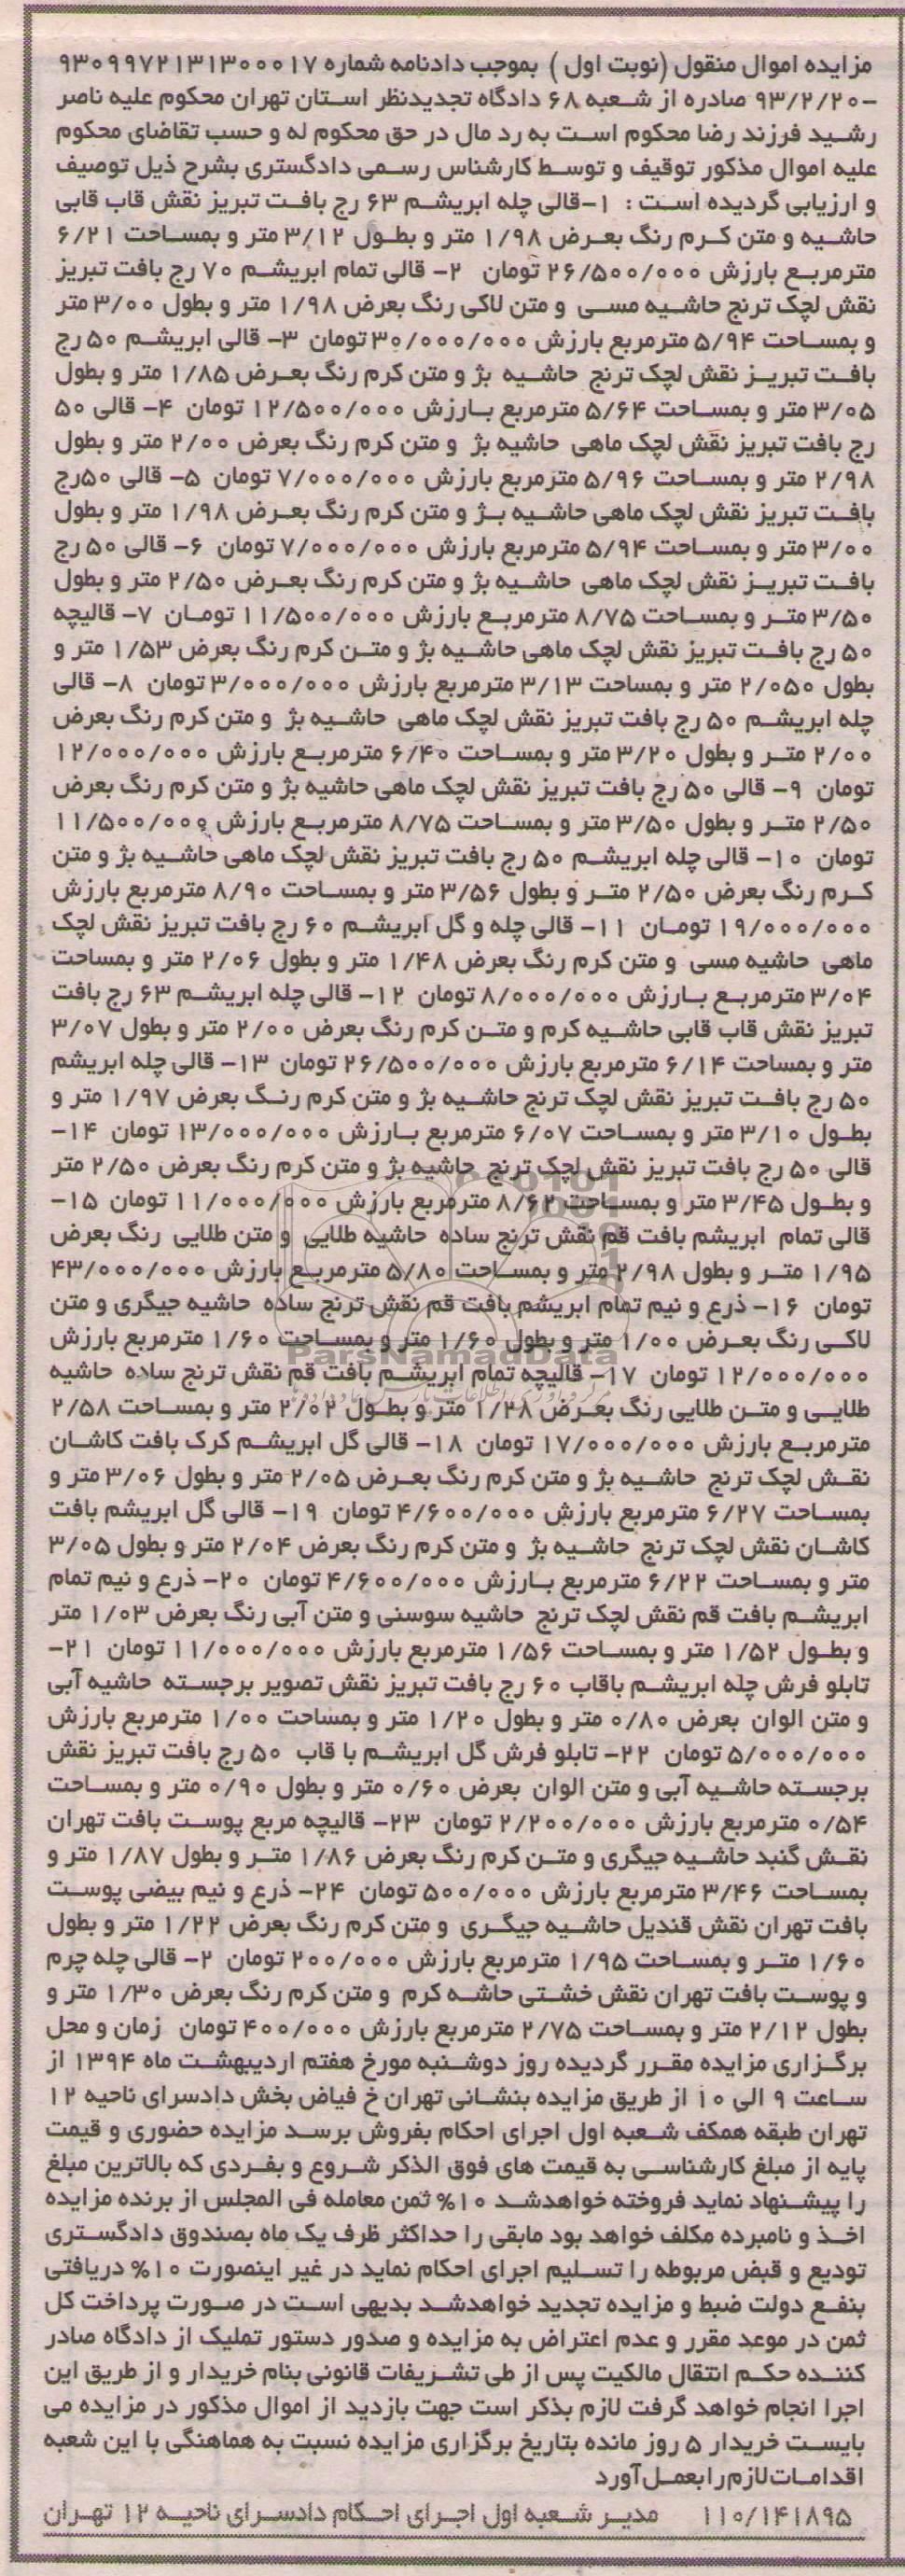 مزایده اموال منقول (نوبت اول ) بموجب دادنامه شماره ۹۳۰۹۹۷۲۱۳۱۳۰۰۰۱۷
-۹۳/۲/۲۰ صادره از شعبه ۶۸ دادگاه تجدیدنظر استان تهران محکوم علیه ناصر
رشید فرزند رضا محکوم است به رد مال در حق محکوم له و حسب تقاضای محکوم
علیه اموال مذکور توقیف و توسط کارشناس رسمی دادگستری بشرح ذیل توصیف
و ارزیابی گردیده است : ۱-قالی چله ابریشم ۶۳ رج بافت تبریز نقش قاب قابی
حاشیه و متن کرم رنگ بعرض ۱/۹۸ متر و بطول ۳/۱۲ متر و بمساحت ۶/۲۱
مترمربع بارزش ۲۶/۵۰۰/۰۰۰ تومان ۲- قالی تمام ابریشم ۷۰ رج بافت تبریز
نقش لچک ترنج حاشیه مسی و متن لاکی رنگ بعرض ۱/۹۸ متر و بطول ۳/۰۰ متر
و بمساحت ۵/۹۴ مترمربع بارزش ۳۰/۰۰۰/۰۰۰ تومان ۳- قالی ابریشم ۵۰ رج
بافت تبریز نقش لچک ترنج حاشیه بژ و متن کرم رنگ بعرض ۱/۸۵ متر و بطول
۳/۰۵ متر و بمساحت ۵/۶۴ مترمربع بارزش ۱۲/۵۰۰/۰۰۰ تومان ۴- قالی ۵۰
رج بافت تبریز نقش لچک ماهی حاشیه بژ و متن کرم رنگ بعرض ۲/۰۰ متر و بطول
۲/۹۸ متر و بمساحت ۵/۹۶ مترمربع بارزش ۷/۰۰۰/۰۰۰ تومان ۵- قالی ۵۰رج
بافت تبریز نقش لچک ماهی حاشیه بژ و متن کرم رنگ بعرض ۱/۹۸ متر و بطول
۳/۰۰ متر و بمساحت ۵/۹۴ مترمربع بارزش ۷/۰۰۰/۰۰۰ تومان ۶- قالی ۵۰ رج
بافت تبریز نقش لچک ماهی حاشیه بژ و متن کرم رنگ بعرض ۲/۵۰ متر و بطول
۳/۵۰ متر و بمساحت ۸/۷۵ مترمربع بارزش ۱۱/۵۰۰/۰۰۰ تومان ۷- قالیچه
۵۰ رج بافت تبریز نقش لچک ماهی حاشیه بژ و متن کرم رنگ بعرض ۱/۵۳ متر و
بطول ۲/۰۵۰ متر و بمساحت ۳/۱۳ مترمربع بارزش ۳/۰۰۰/۰۰۰ تومان ۸- قالی
چله ابریشم ۵۰ رج بافت تبریز نقش لچک ماهی حاشیه بژ و متن کرم رنگ بعرض
۲/۰۰ متر و بطول ۳/۲۰ متر و بمساحت ۶/۴۰ مترمربع بارزش ۱۲/۰۰۰/۰۰۰
تومان ۹- قالی ۵۰ رج بافت تبریز نقش لچک ماهی حاشیه بژ و متن کرم رنگ بعرض
۲/۵۰ متر و بطول ۳/۵۰ متر و بمساحت ۸/۷۵ مترمربع بارزش ۱۱/۵۰۰/۰۰۰
تومان ۱۰- قالی چله ابریشم ۵۰ رج بافت تبریز نقش لچک ماهی حاشیه بژ و متن
کرم رنگ بعرض ۲/۵۰ متر و بطول ۳/۵۶ متر و بمساحت ۸/۹۰ مترمربع بارزش
۱۹/۰۰۰/۰۰۰ تومان ۱۱- قالی چله و گل ابریشم ۶۰ رج بافت تبریز نقش لچک
ماهی حاشیه مسی و متن کرم رنگ بعرض ۱/۴۸ متر و بطول ۲/۰۶ متر و بمساحت
۳/۰۴ مترمربع بارزش ۸/۰۰۰/۰۰۰ تومان ۱۲- قالی چله ابریشم ۶۳ رج بافت
تبریز نقش قاب قابی حاشیه کرم و متن کرم رنگ بعرض ۲/۰۰ متر و بطول ۳/۰۷
متر و بمساحت ۶/۱۴ مترمربع بارزش ۲۶/۵۰۰/۰۰۰ تومان ۱۳- قالی چله ابریشم
۵۰ رج بافت تبریز نقش لچک ترنج حاشیه بژ و متن کرم رنگ بعرض ۱/۹۷ متر و
بطول ۳/۱۰ متر و بمساحت ۶/۰۷ مترمربع بارزش ۱۳/۰۰۰/۰۰۰ تومان ۱۴-
قالی ۵۰ رج بافت تبریز نقش لچک ترنج حاشیه بژ و متن کرم رنگ بعرض ۲/۵۰ متر
و بطول ۳/۴۵ متر و بمساحت ۸/۶۲ مترمربع بارزش ۱۱/۰۰۰/۰۰۰ تومان ۱۵-
قالی تمام ابریشم بافت قم نقش ترنج ساده حاشیه طلایی و متن طلایی رنگ بعرض
۱/۹۵ متر و بطول ۲/۹۸ متر و بمساحت ۵/۸۰ مترمربع بارزش ۴۳/۰۰۰/۰۰۰
تومان ۱۶- ذرع و نیم تمام ابریشم بافت قم نقش ترنج ساده حاشیه جیگری و متن
لاکی رنگ بعرض ۱/۰۰ متر و بطول ۱/۶۰ متر و بمساحت ۱/۶۰ مترمربع بارزش
ParsNamadData
۱۲/۰۰۰/۰۰۰ تومان ۱۷- قالیچه تمام ابریشم بافت قم نقش ترنج ساده حاشیه
طلایی و متن طلایی رنگ بعرض ۱/۲۸ متر و بطول ۲/۰۲ متر و بمساحت ۲/۵۸
مترمربع بارزش ۱۷/۰۰۰/۰۰۰ تومان ۱۸- قالی گل ابریشم کرک بافت کاشان
نقش لچک ترنج حاشیه بژ و متن کرم رنگ بعرض ۲/۰۵ متر و بطول ۳/۰۶ متر و
بمساحت ۶/۲۷ مترمربع بارزش ۴/۶۰۰/۰۰۰ تومان ۱۹- قالی گل ابریشم بافت
کاشان نقش لچک ترنج حاشیه بژ و متن کرم رنگ بعرض ۲/۰۴ متر و بطول ۳/۰۵
متر و بمساحت ۶/۲۲ مترمربع بارزش ۴/۶۰۰/۰۰۰ تومان ۲۰- ذرع و نیم تمام
ابریشم بافت قم نقش لچک ترنج حاشیه سوسنی و متن آبی رنگ بعرض ۱/۰۳ متر
و بطول ۱/۵۲ متر و بمساحت ۱/۵۶ مترمربع بارزش ۱۱/۰۰۰/۰۰۰ تومان ۲۱-
تابلو فرش چله ابریشم باقاب ۶۰ رج بافت تبریز نقش تصویر برجسته حاشیه آبی
و متن الوان بعرض ۰/۸۰ متر و بطول ۱/۲۰ متر و بمساحت ۱/۰۰ مترمربع بارزش
۵/۰۰۰/۰۰۰ تومان ۲۲- تابلو فرش گل ابریشم با قاب ۵۰ رج بافت تبریز نقش
برجسته حاشیه آبی و متن الوان بعرض ۰/۶۰ متر و بطول ۰/۹۰ متر و بمساحت
۰/۵۴ مترمربع بارزش ۲/۲۰۰/۰۰۰ تومان ۲۳- قالیچه مربع پوست بافت تهران
نقش گنبد حاشیه جیگری و متن کرم رنگ بعرض ۱/۸۶ متر و بطول ۱/۸۷ متر و
بمساحت ۳/۴۶ مترمربع بارزش ۵۰۰/۰۰۰ تومان ۲۴- ذرع و نیم بیضی پوست
بافت تهران نقش قندیل حاشیه جیگری و متن کرم رنگ بعرض ۱/۲۲ متر و بطول
۱/۶۰ متر و بمساحت ۱/۹۵ مترمربع بارزش ۲۰۰/۰۰۰ تومان ۲- قالی چله چرم
و پوست بافت تهران نقش خشتی حاشه کرم و متن کرم رنگ بعرض ۱/۳۰ متر و
بطول ۲/۱۲ متر و بمساحت ۲/۷۵ مترمربع بارزش ۴۰۰/۰۰۰ تومان زمان و محل
برگزاری مزایده مقرر گردیده روز دوشنبه مورخ هفتم اردیبهشت ماه ۱۳۹۴ از
ساعت ۹ الی ۱۰ از طریق مزایده بنشانی تهران خ فیاض بخش دادسرای ناحیه ۱۲
تهران طبقه همکف شعبه اول اجرای احکام بفروش برسد مزایده حضوری و قیمت
پایه از مبلغ کارشناسی به قیمت های فوق الذکر شروع و بفردی که بالاترین مبلغ
را پیشنهاد نماید فروخته خواهدشد ۱۰% ثمن معامله فی المجلس از برنده مزایده
اخذ و نامبرده مکلف خواهد بود مابقی را حداکثر ظرف یک ماه بصندوق دادگستری
تودیع و قبض مربوطه را تسلیم اجرای احکام نماید در غیر اینصورت ۱۰% دریافتی
بنفع دولت ضبط و مزایده تجدید خواهدشد بدیهی است در صورت پرداخت کل
ثمن در موعد مقرر و عدم اعتراض به مزایده و صدور دستور تملیک از دادگاه صادر
کننده حکم انتقال مالکیت پس از طی تشریفات قانونی بنام خریدار و از طریق این
اجرا انجام خواهد گرفت لازم بذکر است جهت بازدید از اموال مذکور در مزایده می
بایست خریدار ۵ روز مانده بتاریخ برگزاری مزایده نسبت به هماهنگی با این شعبه
اقدامات لازم را بعمل آورد
۱۱۰/۱۴۱۸۹۵ مدیر شعبه اول اجرای احکام دادسرای ناحیه ۱۲ تهران